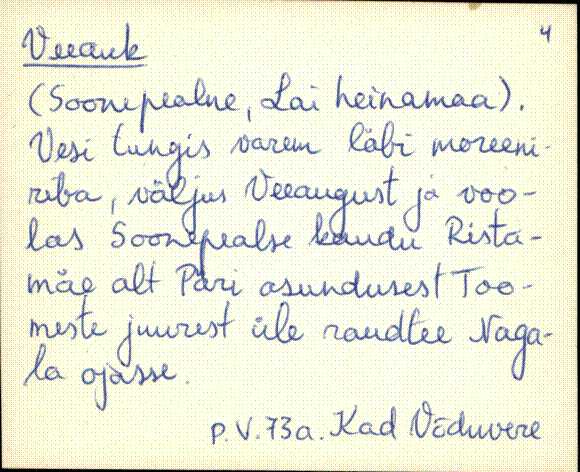 4
Veeauk
(Soonepealne, Lai heinamaa).
Vesi tungis varem läbi moreeni-
riba, väljus Veeaugust ja voo-
las Soonepealse kaudu Rista-
mäe alt Päri asundusest Too-
meste juurest üle raudtee Naga-
la ojasse.
P.V.73a. Kad Võduvere